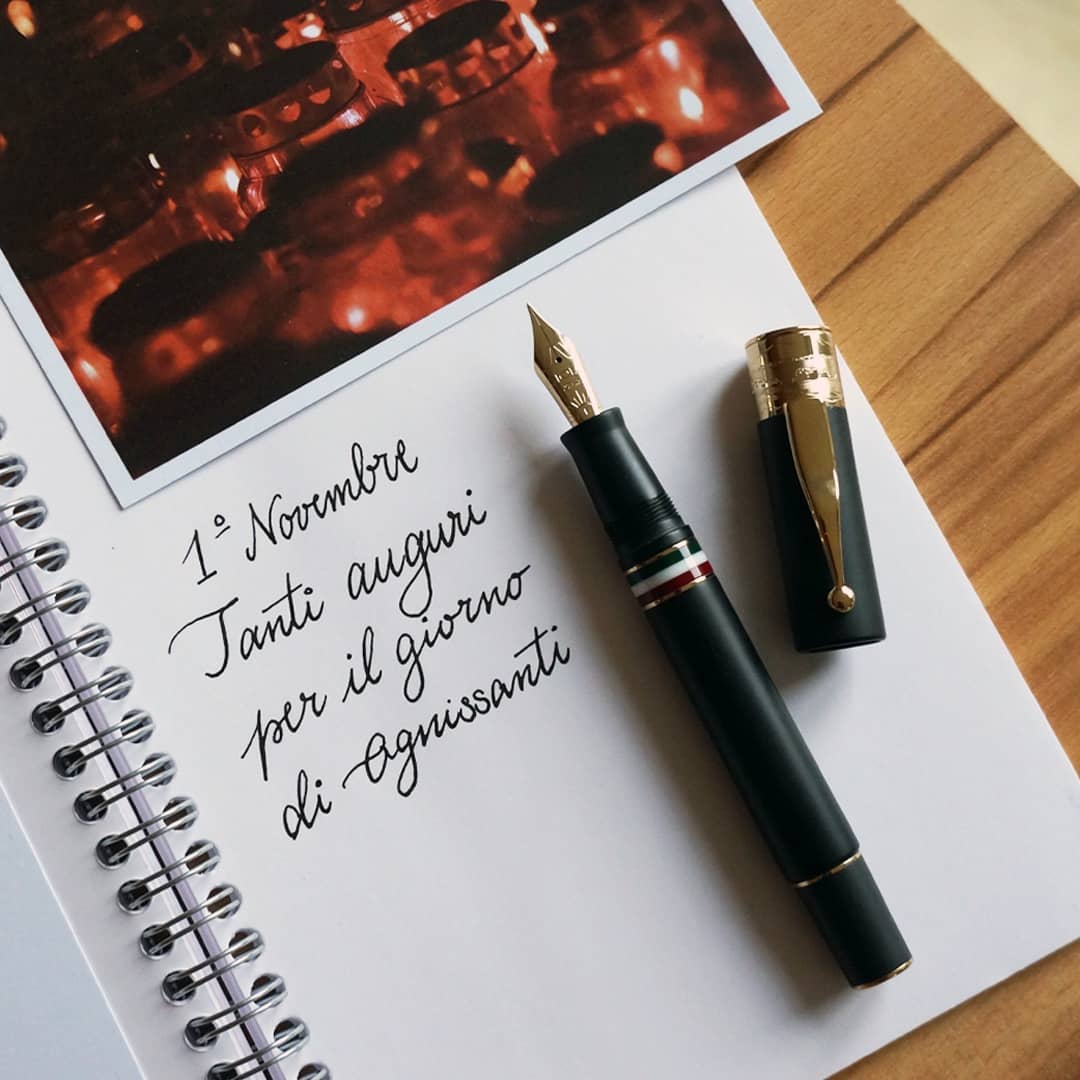 1º Novembre
Tanti auguri
per il giorno
di ognissanti